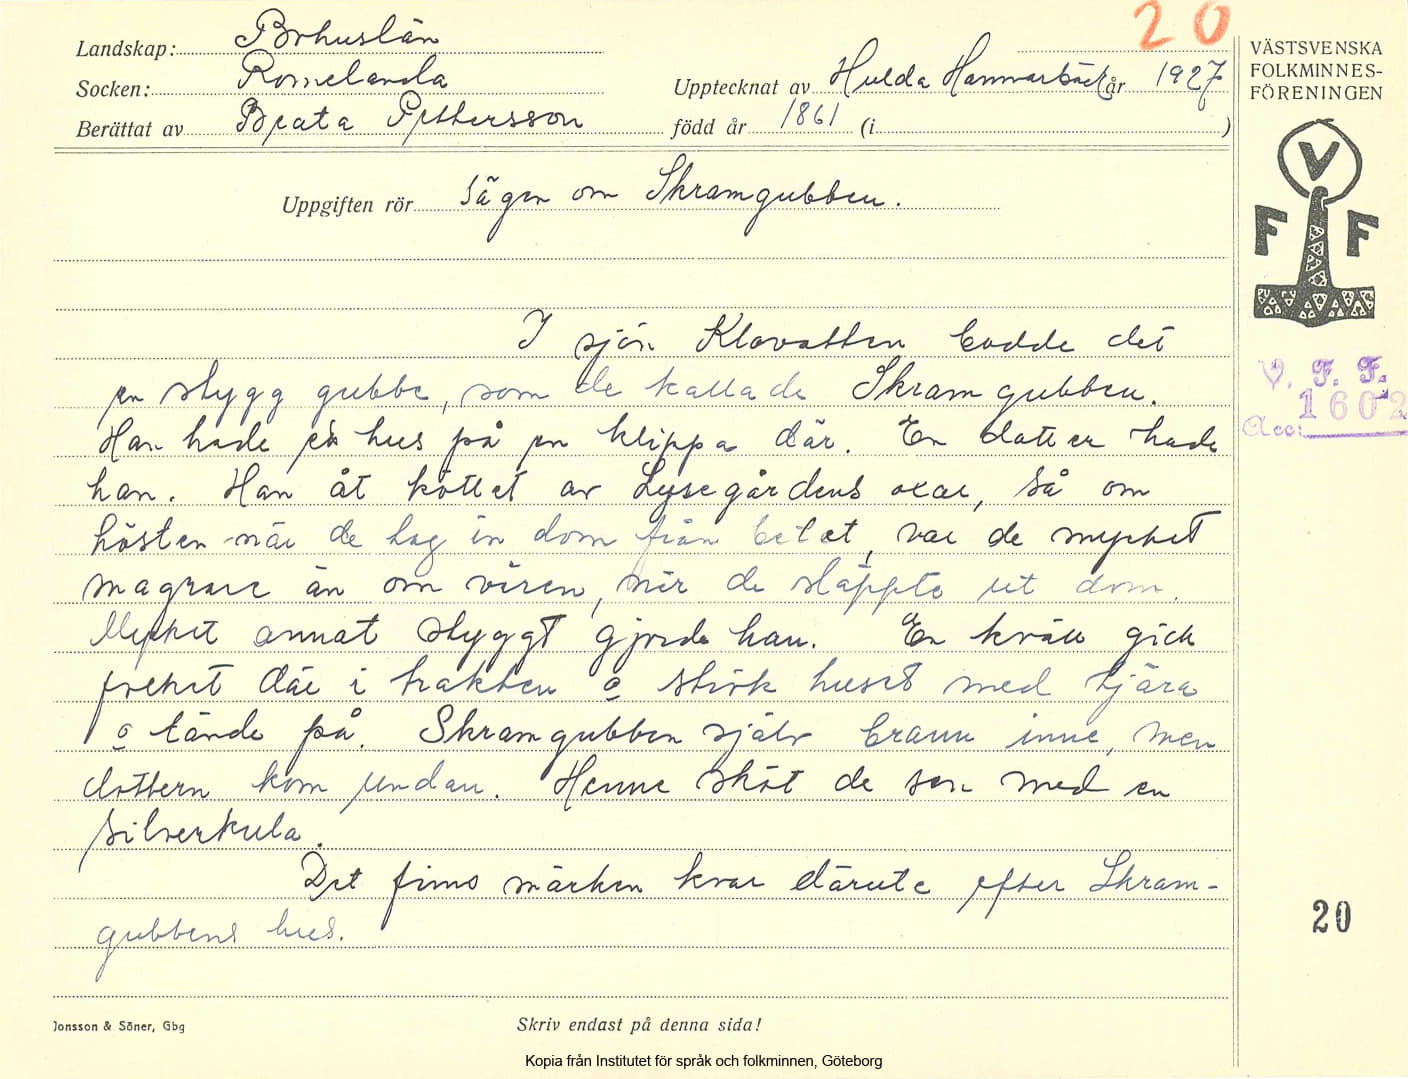 20
Landskap: Bohuslän
Socken: Romelanda
Upptecknat av Hulda Hammarbäck år 1927
Berättat av Beata Pettersson född år 1861 (i )
Uppgiften rör Sägen om Skramgubben.
VÄSTSVENSKA
FOLKMINNES-
FÖRENINGEN
V
F F
V. F. F.
1602
Acc:
I sjön Klovatten bodde det
en stygg gubbe, som de kallade Skramgubben.
Han hade ett hus på en klippa där. En dotter hade
han. Han åt köttet av Lysegårdens oxar, så om
hösten när de tog in dom från betet, var de mycket
magrare än om våren, när de släppte ut dom.
Mycket annat styggt gjorde han. En kväll gick
folket där i trakten o strök huset med tjära
o tände på. Skramgubben själv brann inne, men
dottern kom undan. Henne sköt de sen med en
silverkula.
Det finns märken kvar därute efter Skram-
gubbens hus.
20
Jonsson & Söner, Gbg
Skriv endast på denna sida!
Kopia från Institutet för språk och folkminnen, Göteborg